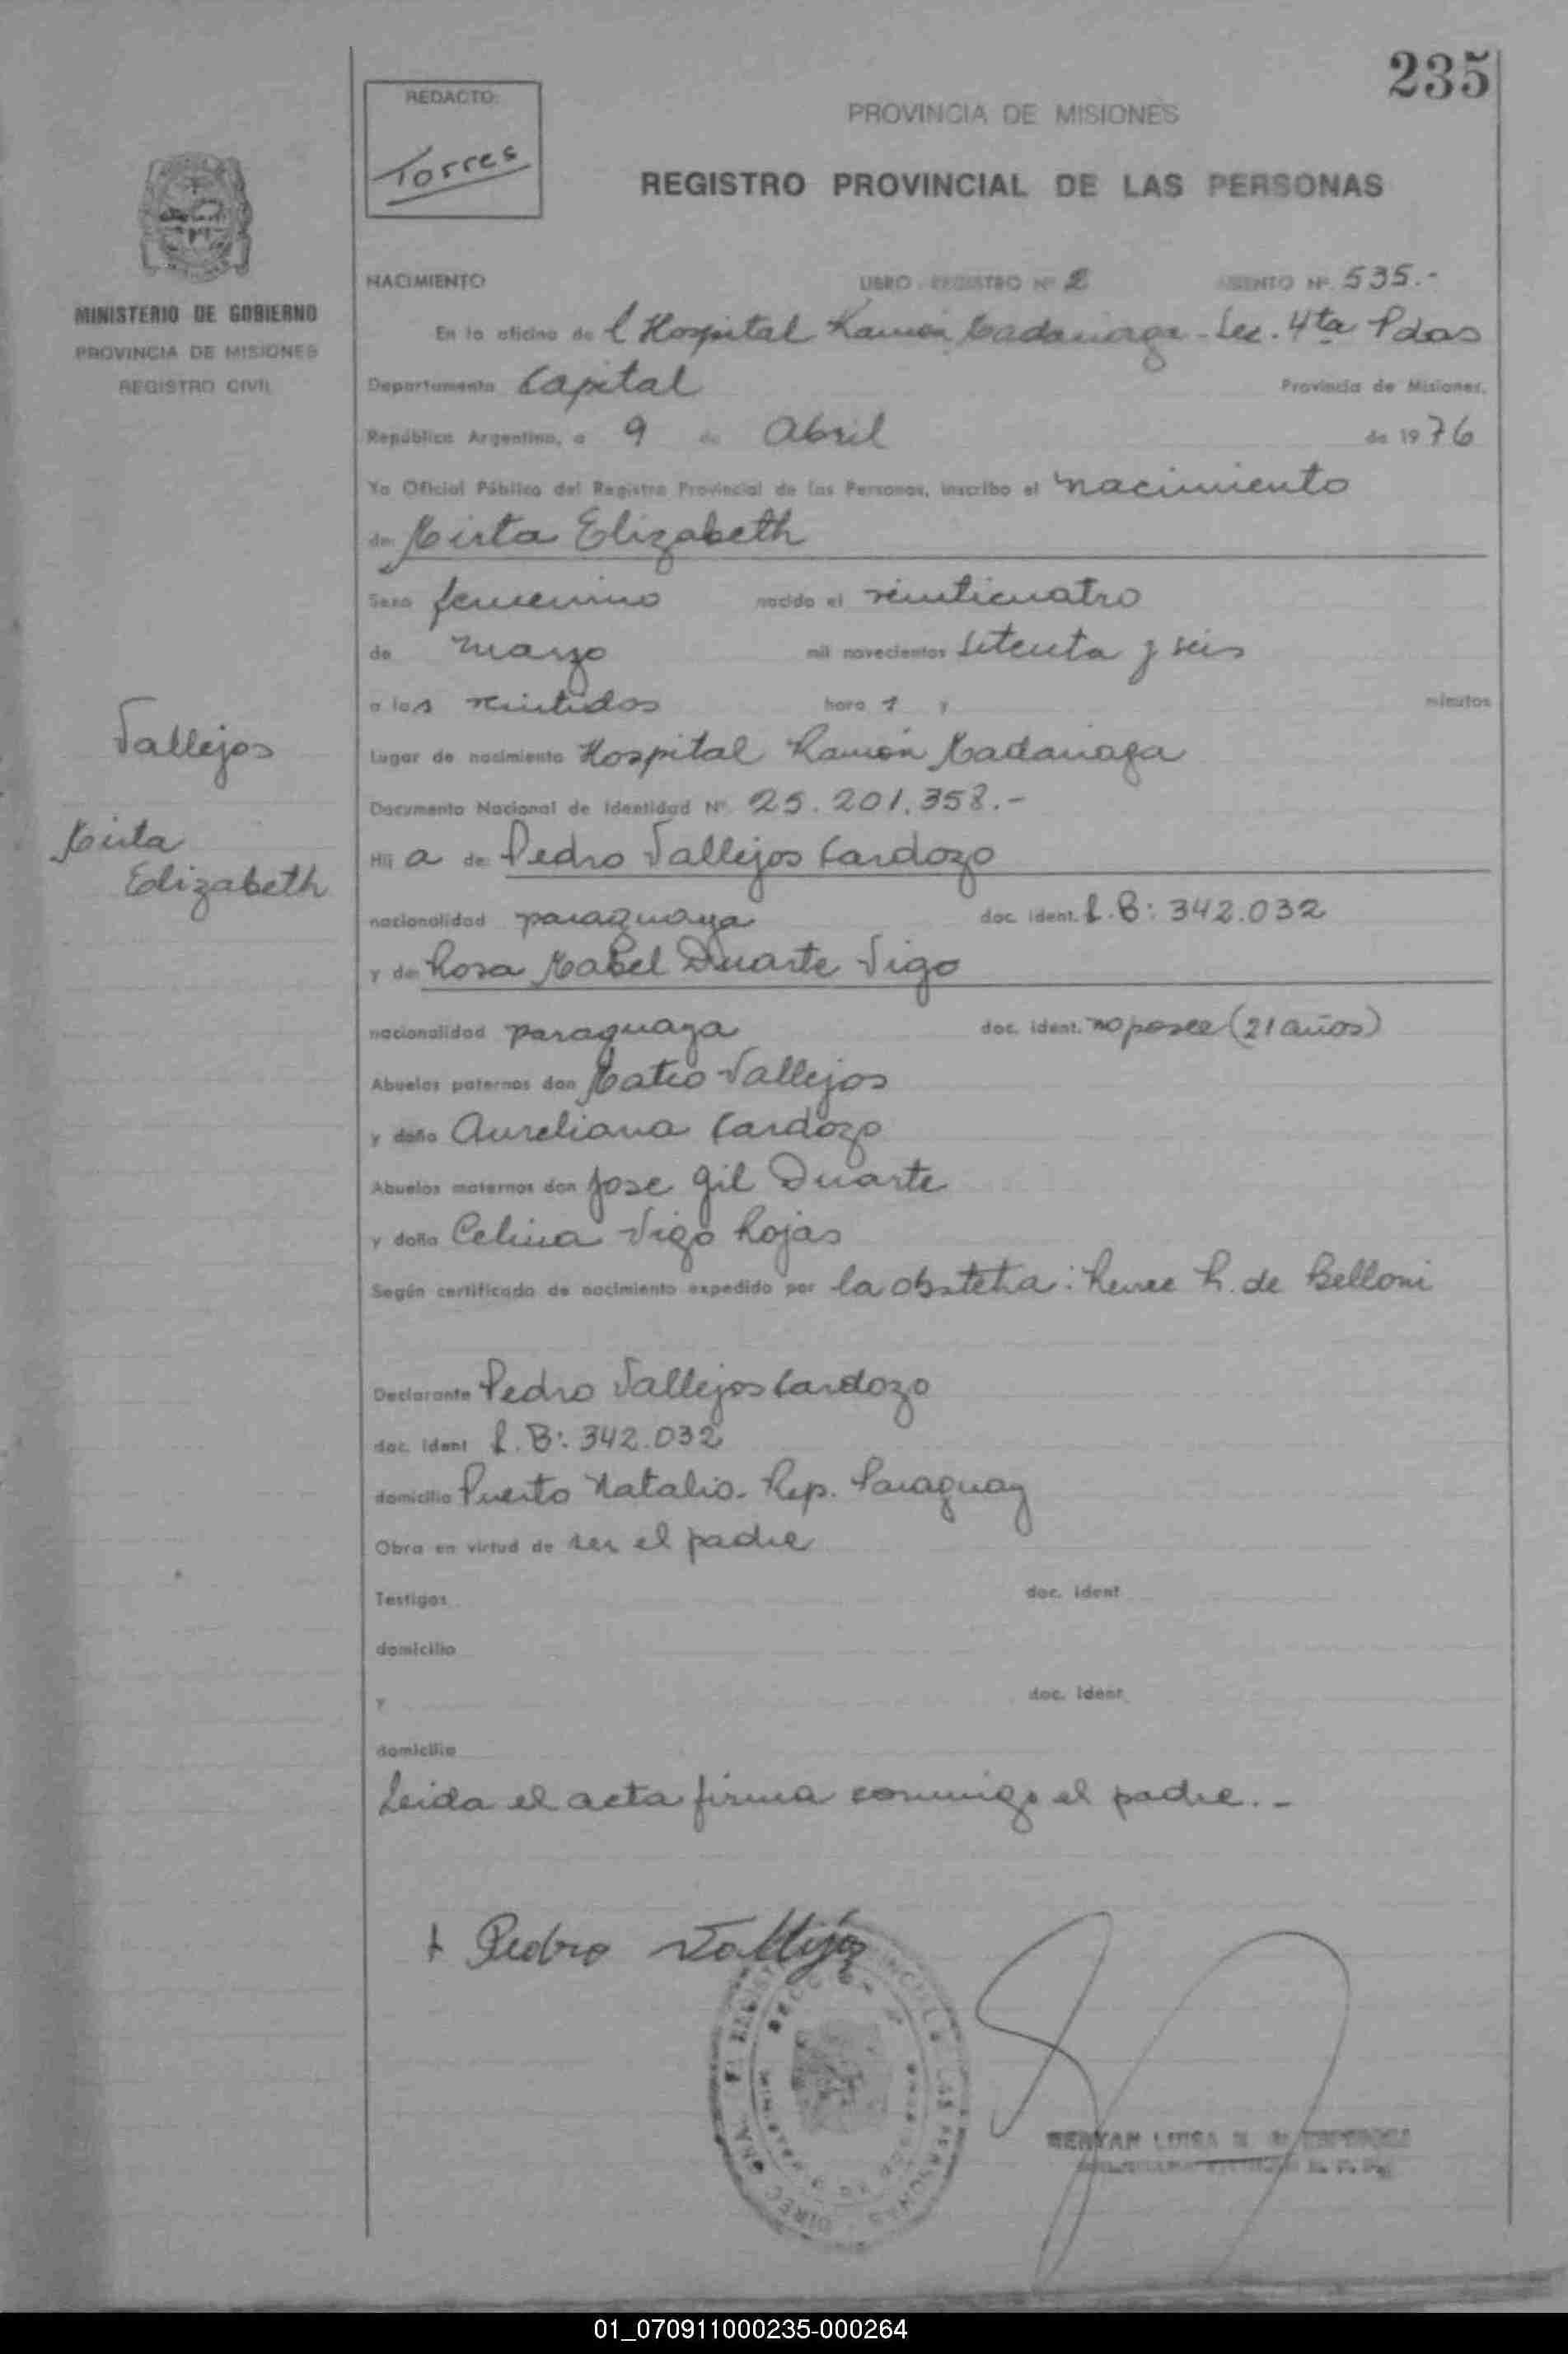 235
REDACTO:
Torres
PROVINCIA DE MISIONES
REGISTRO PROVINCIAL DE LAS PERSONAS
MINISTERIO DE GOBIERNO
PROVINCIA DE MISIONES
REGISTRO CIVIL
NACIMIENTO LIBRO REGISTRO Nº 2 ASIENTO Nº 535.-
En la oficina de l Hospital Ramón Madariaga - Sec. 4ta Pdas
Departamento Capital Provincia de Misiones.
República Argentina, a 9 de Abril de 1976
Yo Oficial Público del Registro Provincial de las Personas, inscribo el nacimiento
de Mirta Elizabeth
Sexo femenino nacido el veinticuatro
de marzo mil novecientos setenta y seis
a las veintidos hora s y minutos
Vallejos
Lugar de nacimiento Hospital Ramón Madariaga
Documento Nacional de Identidad Nº 25.201.358.-
Mirta
Elizabeth
Hij a de Pedro Vallejos Cardozo
nacionalidad paraguaya doc. ident. R.B: 342.032
y de Rosa Mabel Duarte Vigo
nacionalidad paraguaya doc. ident. no posee (21 años)
Abuelos paternos don Mateo Vallejos
y doña Aureliana Cardozo
Abuelos maternos don Jose Gil Duarte
y doña Celina Vigo Rojas
Según certificado de nacimiento expedido por la obstetra: Renee R. de Belloni
Declarante Pedro Vallejos Cardozo
doc. ident R.B: 342.032
domicilio Puerto Natalio - Rep. Paraguay
Obra en virtud de ser el padre
Testigos doc. ident
domicilio
y doc. ident
domicilio
Leida el acta firma conmigo el padre.-
Pedro Vallejos
01_070911000235-000264